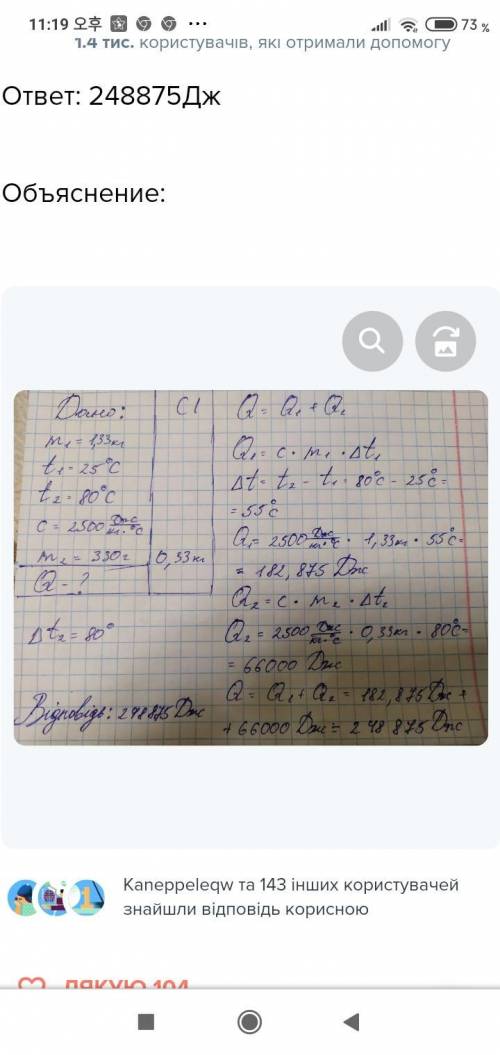 11:19 오후 ... 73 %
1.4 тис. користувачів, які отримали допомогу
Ответ: 248875Дж
Объяснение:
Дано:
m₁ = 1,33кг
t₁ = 25°C
t₂ = 80°C
c = 2500 Дж/кг·°C
m₂ = 330г
Q - ?
Δt₂ = 80°
Відповідь: 248875 Дж
СІ
0,33кг
Q = Q₁ + Q₂
Q₁ = c · m₁ · Δt₁
Δt = t₂ - t₁ = 80°C - 25°C =
= 55°C
Q₁ = 2500 Дж/кг·°C · 1,33кг · 55°C =
= 182,875 Дж
Q₂ = c · m₂ · Δt₂
Q₂ = 2500 Дж/кг·°C · 0,33кг · 80°C =
= 66000 Дж
Q = Q₁ + Q₂ = 182,875 Дж +
+ 66000 Дж = 248 875 Дж
Kaneppeleqw та 143 інших користувачей
знайшли відповідь корисною
ДЯКУЮ 104